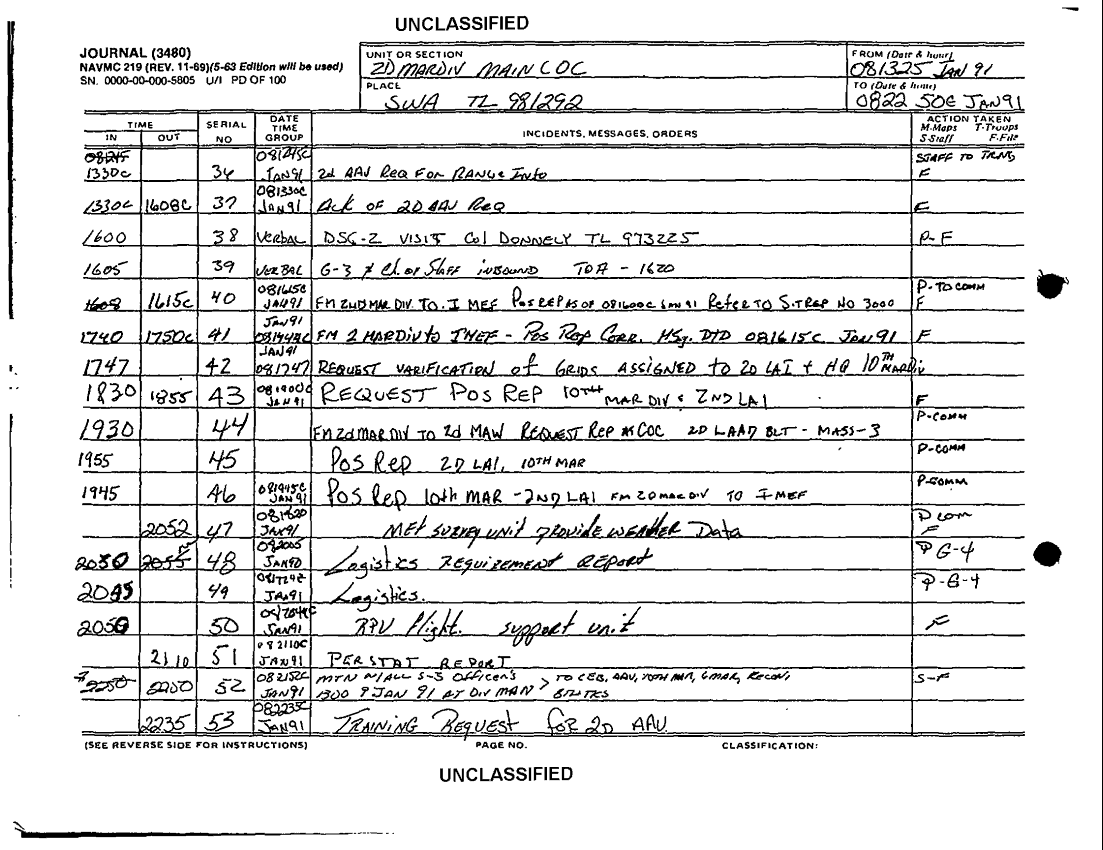 UNCLASSIFIED
JOURNAL (3480)
NAVMC 219 (REV. 11-69)(5-63 Edition will be used)
SN. 0000-00-000-5805 U/I PD OF 100
UNIT OR SECTION
2D MARDIV MAIN COC
PLACE
SWA TL 981292
FROM (Date & hour)
081325 JAN 91
TO (Date & hour)
0822 50C JAN91
TIME
IN OUT
SERIAL NO
DATE TIME GROUP
INCIDENTS, MESSAGES, ORDERS
ACTION TAKEN
M-Maps T-Troops
S-Staff F-File
1330C 36 081245C JAN91 2d AAV Req For Range Info STAFF TO TRNG F
1330C 1608C 37 081330C JAN91 Ack OF 2D AAV Req F
1600 38 Verbal DSG-2 VISIT Col DONNELY TL 973225 P-F
1605 39 VERBAL G-3 & Ch. of Staff inbound TOA - 1620
1608 1615C 40 081615C JAN91 FM 2ND MAR DIV. TO. I MEF Pos REP AS OF 081600C JAN 91 Refer TO S.TREP NO 3000 P-TO COMM F
1740 1750C 41 JAN91 FM 2 MARDIV to IMEF - Pos Rep Corr. HSg. DTD 081615C JAN 91 F
1747 42 JAN91 081747 REQUEST VARIFICATION of GRIDS ASSIGNED to 2D LAI + HQ 10TH MARDiv
1830 1855 43 081900C JAN91 REQUEST POS REP 10TH MAR DIV & 2ND LAI F
1930 44 FM 2d MAR DIV TO 2d MAW REQUEST REP COC 2D LAAD BLT - MASS-3 P-COMM
1955 45 Pos Rep 2D LAI, 10TH MAR P-COMM
1945 46 081945C JAN91 POS Rep 10th MAR - 2ND LAI FM 2D MAR DIV TO I MEF P-COMM
2052 47 081820 JAN91 MET SURVEY UNIT PROVIDE WEATHER Data P com F
2030 2055 48 082005 JAN90 Logistics REQUIREMENT REPORT P G-4
2045 49 JAN91 Logistics. P-G-4
2050 50 JAN91 RPV flight. support unit F
2110 51 082110C JAN91 PERSTAT REPORT
2250 2200 52 082152C JAN91 MTN W/ALL S-3 Officers 1300 9 JAN 91 AT DIV MAIN > TO CEB, AAV, 10TH MAR, 6MAR, RECON, S-F
2235 53 082235C JAN91 TRAINING REQUEST for 2D AAV.
(SEE REVERSE SIDE FOR INSTRUCTIONS) PAGE NO. CLASSIFICATION:
UNCLASSIFIED